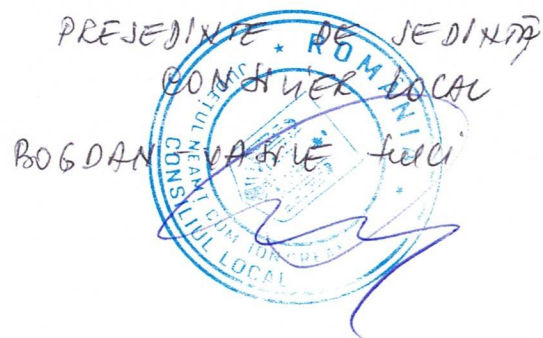 PREȘEDINTE DE ȘEDINȚĂ
CONSILIER LOCAL
BOGDAN - VASILE
* ROMÂNIA *
JUDEȚUL NEAMȚ COM. ION CREANGĂ
CONSILIUL LOCAL